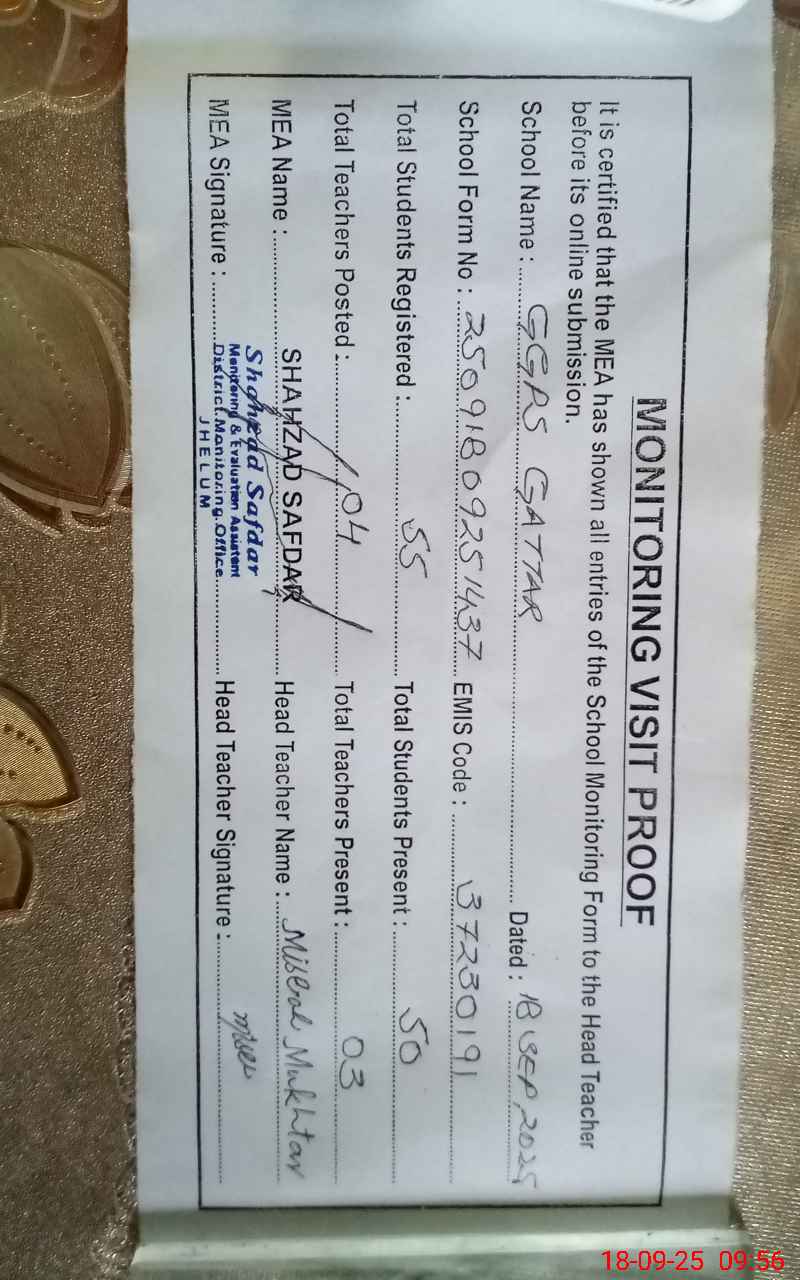 MONITORING VISIT PROOF
It is certified that the MEA has shown all entries of the School Monitoring Form to the Head Teacher
before its online submission.
School Name : GGPS GATTAR Dated : 18 SEP, 2025
School Form No : 25091809251437 EMIS Code : 37230191
Total Students Registered : 55 Total Students Present : 50
Total Teachers Posted : 04 Total Teachers Present : 03
MEA Name : SHAHZAD SAFDAR Head Teacher Name : Misbah Mukhtar
MEA Signature : Head Teacher Signature :
Shahzad Safdar
Monitoring & Evaluation Assistant
District Monitoring Office
JHELUM
18-09-25 09:56